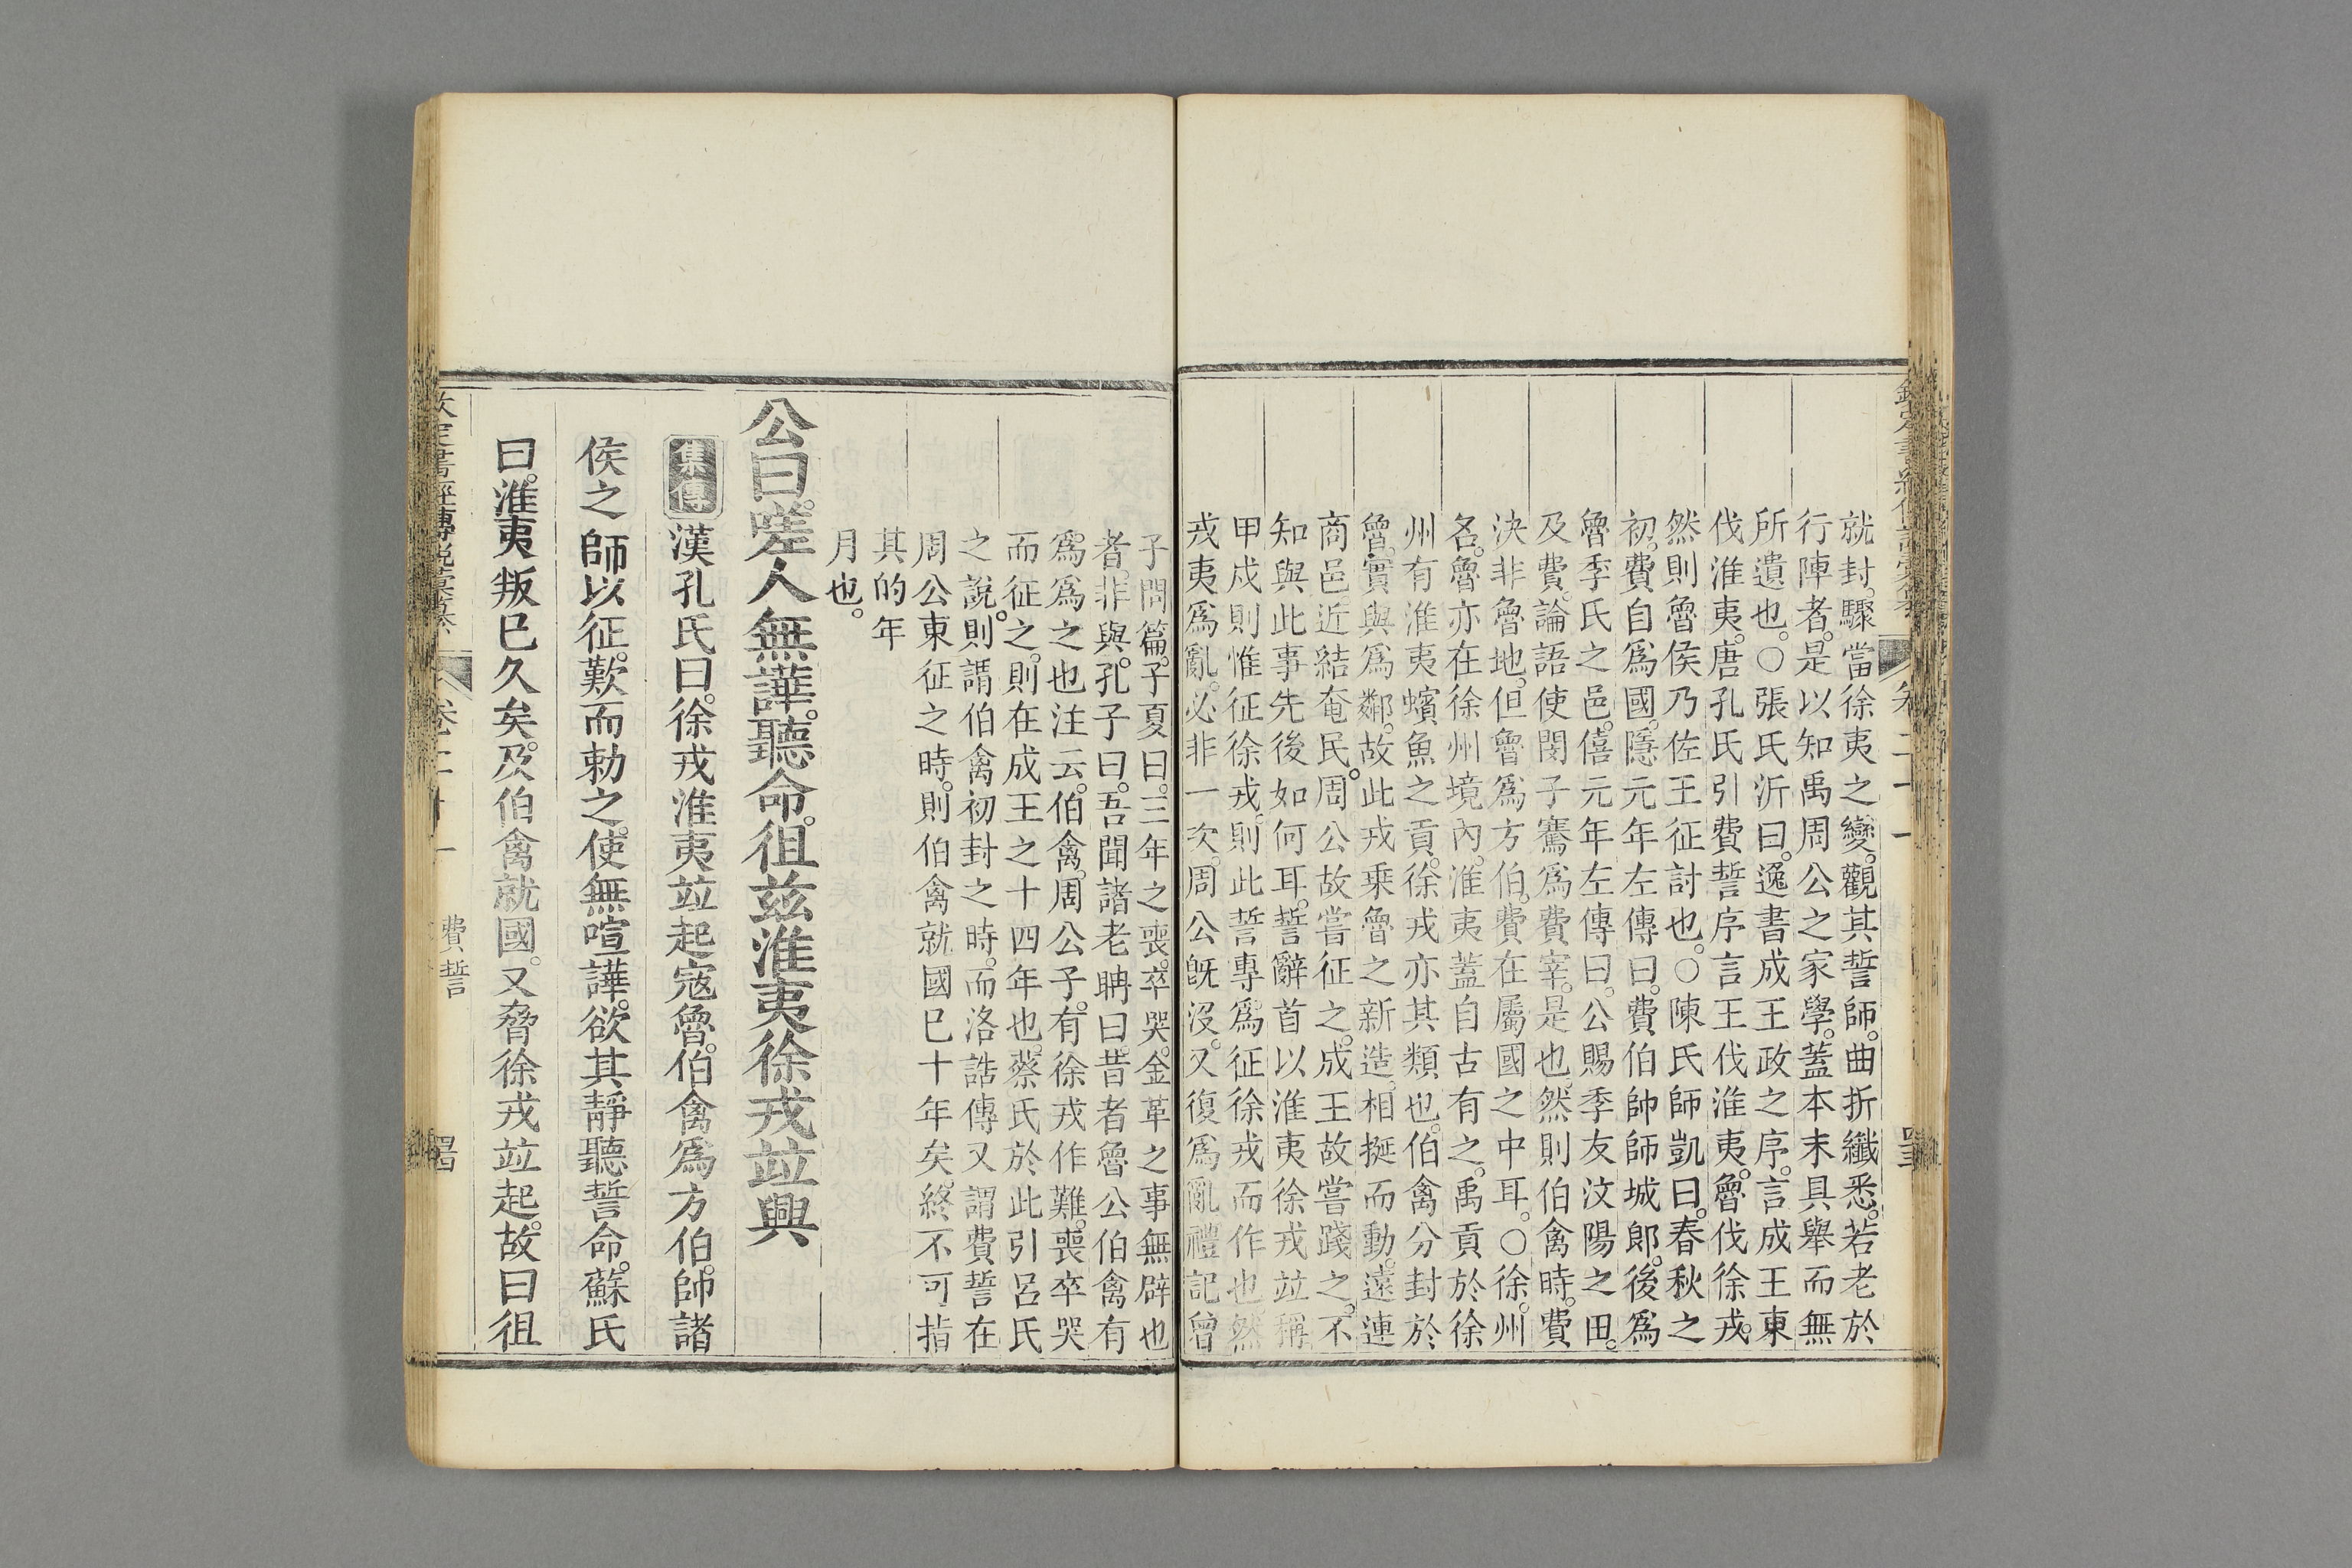 就封。驟當徐夷之變。觀其誓師。曲折纖悉。若老於
行陣者。是以知禹周公之家學。蓋本末具舉而無
所遺也。○張氏沂曰。逸書成王政之序。言成王東
伐淮夷。唐孔氏引費誓序言王伐淮夷。魯伐徐戎。
然則魯侯乃佐王征討也。○陳氏師凱曰。春秋之
初。費自爲國。隱元年左傳曰。費伯帥師城郎。後爲
魯季氏之邑。僖元年左傳曰。公賜季友汶陽之田。
及費。論語使閔子騫爲費宰。是也。然則伯禽時。費
決非魯地。但魯爲方伯。費在屬國之中耳。○徐。州
名。魯亦在徐州境內。淮夷蓋自古有之。禹貢於徐
州有淮夷蠙魚之貢。徐戎亦其類也。伯禽分封於
魯。實與爲鄰。故此戎乘魯之新造。相挻而動。遠連
商邑。近結奄民。周公故嘗征之。成王故嘗踐之。不
知與此事先後如何耳。誓辭首以淮夷徐戎竝稱
甲戍則惟征徐戎。則此誓專爲征徐戎而作也。然
戎夷爲亂。必非一次。周公旣沒。又復爲亂禮記曾
子問篇。子夏曰。三年之喪。卒哭。金革之事無辟也
者。非與。孔子曰。吾聞諸老聃曰。昔者魯公伯禽有
爲爲之也注云。伯禽。周公子。有徐戎作難。喪卒哭
而征之。則在成王之十四年也。蔡氏於此引呂氏
之說。則謂伯禽初封之時。而洛誥傳又謂費誓在
周公東征之時。則伯禽就國已十年矣。終不可指
其的年
月也。
公曰。嗟人無譁。聽命。徂茲淮夷徐戎竝興
集傳 漢孔氏曰。徐戎淮夷竝起寇魯。伯禽爲方伯。師諸
侯之師以征。歎而勅之。使無喧譁。欲其靜聽誓命。蘇氏
曰。淮夷叛已久矣。及伯禽就國。又脅徐戎竝起。故曰徂
卷二十一
費誓